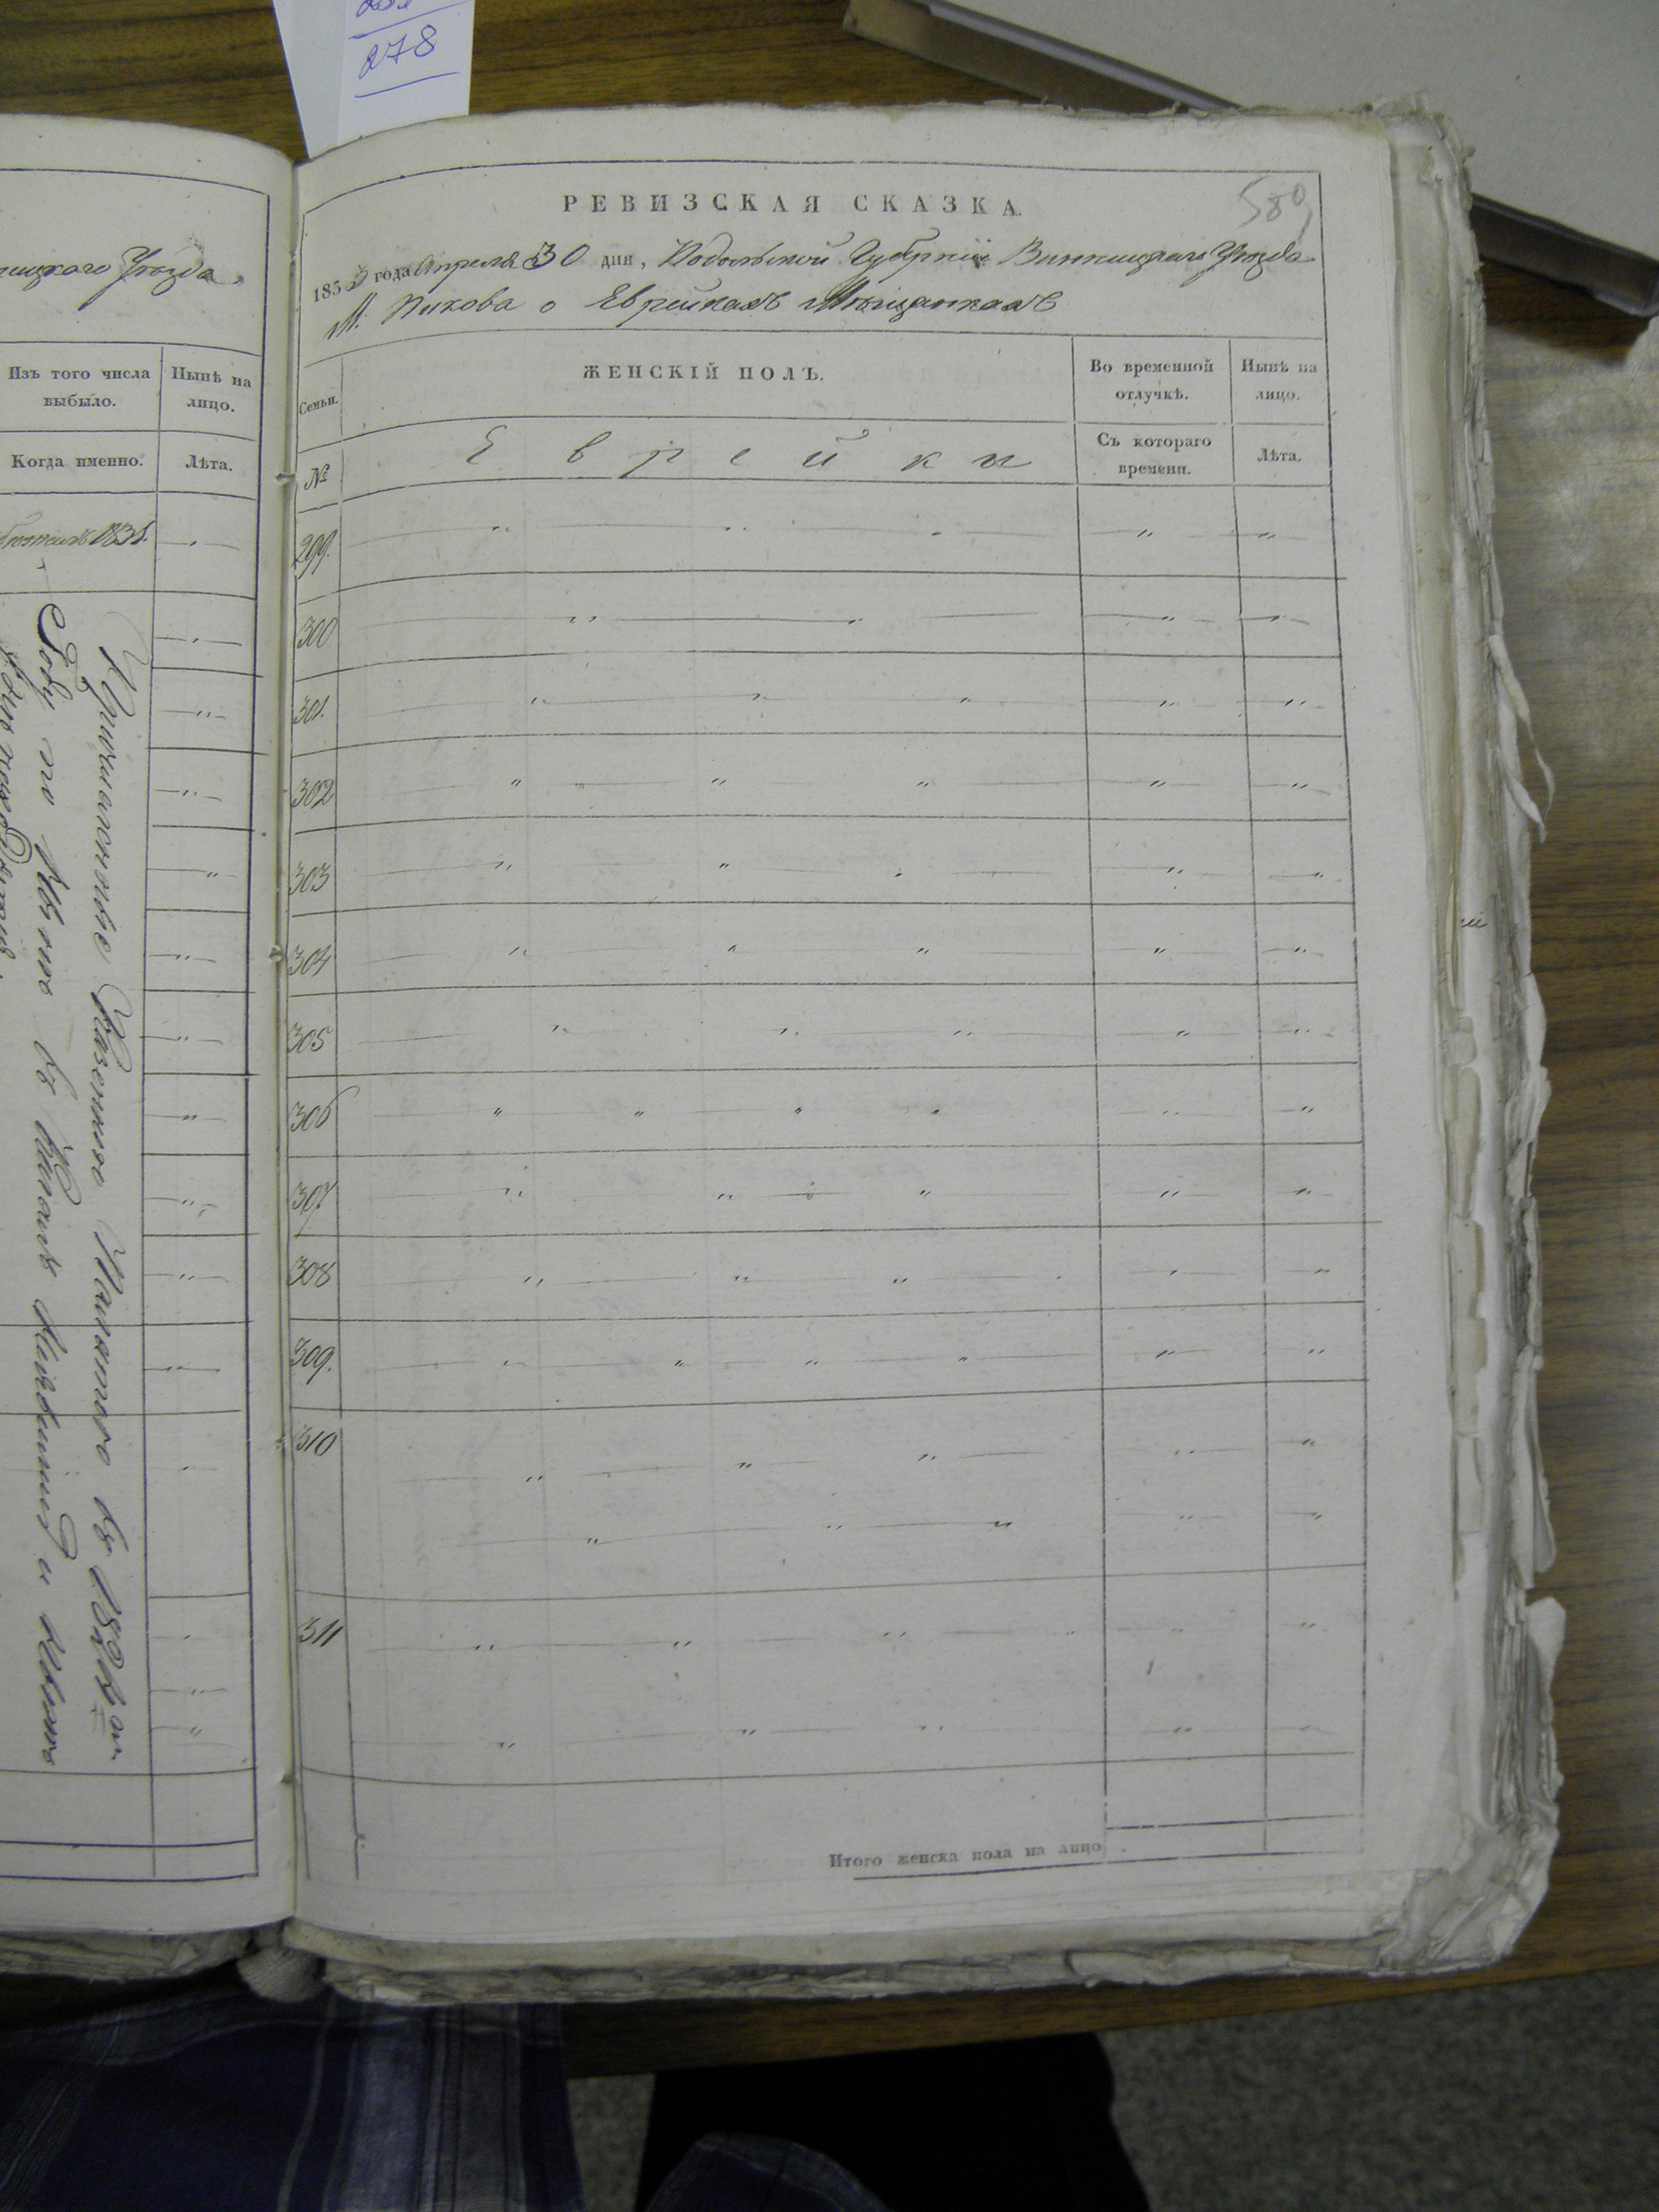 278
ницкаго Уѣзда.
Изъ того числа выбыло.
Ныне на лицо.
Когда именно.
Лѣта.
1834.
Причисленные Казенною Палатою въ 1828м
Году по
и
РЕВИЗСКАЯ СКАЗКА.
589
185 года Апреля 30 дня, Подольской Губерніи Винницкаго Уѣзда
М. Пикова о Еврейкахъ Мѣщанкахъ
Семьи.
ЖЕНСКІЙ ПОЛЪ.
Во временной отлучкѣ.
Нынѣ на лицо.
№
Еврейки
Съ котораго времени.
Лѣта.
299.
300
301.
302.
303
304
305
306
307
308
309.
310
311
Итого женска пола на лицо